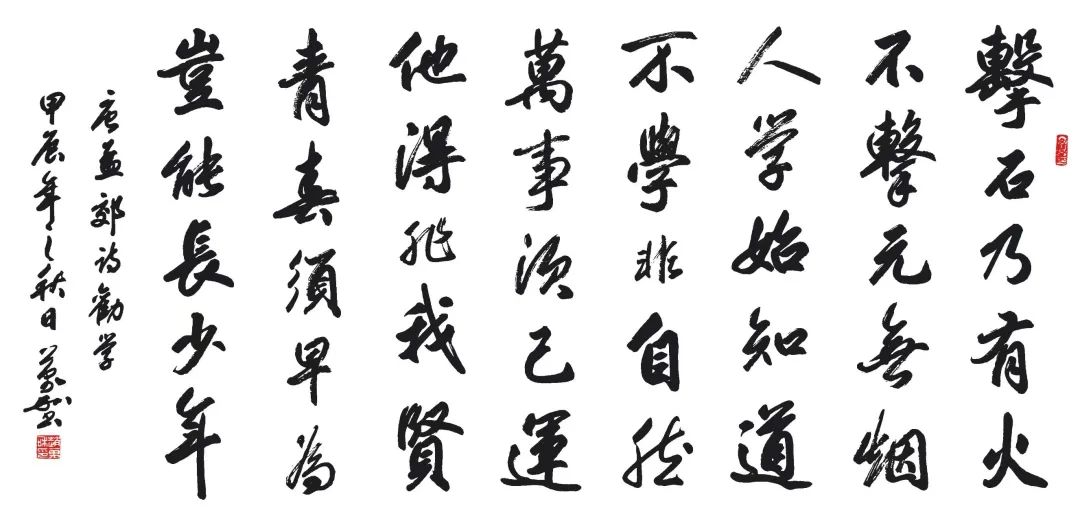 擊石乃有火
不擊元無烟
人学始知道
不學非自然
萬事須己運
他得非我賢
青春須早為
豈能長少年
唐孟郊詩勸学
甲辰年之秋日